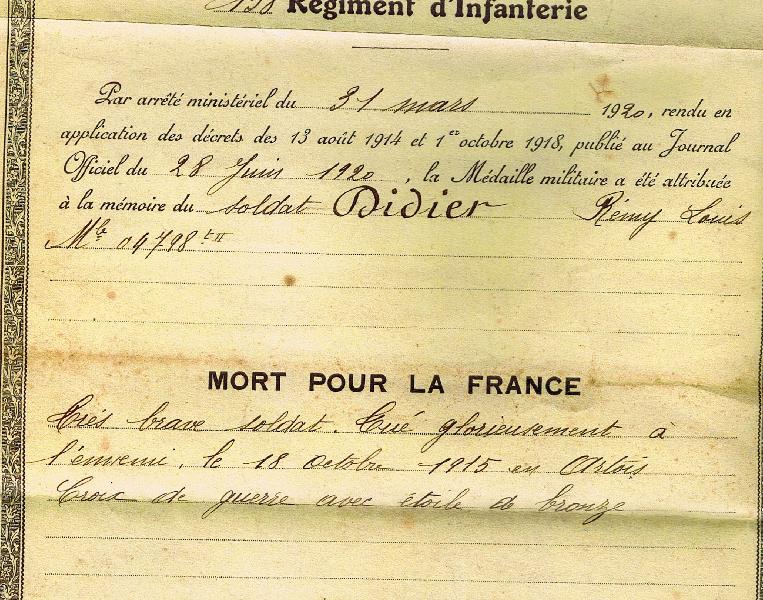 158 Régiment d'Infanterie
Par arrêté ministériel du 31 mars 1920, rendu en
application des décrets des 13 août 1914 et 1er octobre 1918, publié au Journal
Officiel du 28 Juin 1920, la Médaille militaire a été attribuée
à la mémoire du soldat Didier Rémy Louis
Mle 04798
MORT POUR LA FRANCE
Très brave soldat. Tué glorieusement à
l'ennemi, le 18 octobre 1915 en Artois
Croix de guerre avec étoile de bronze